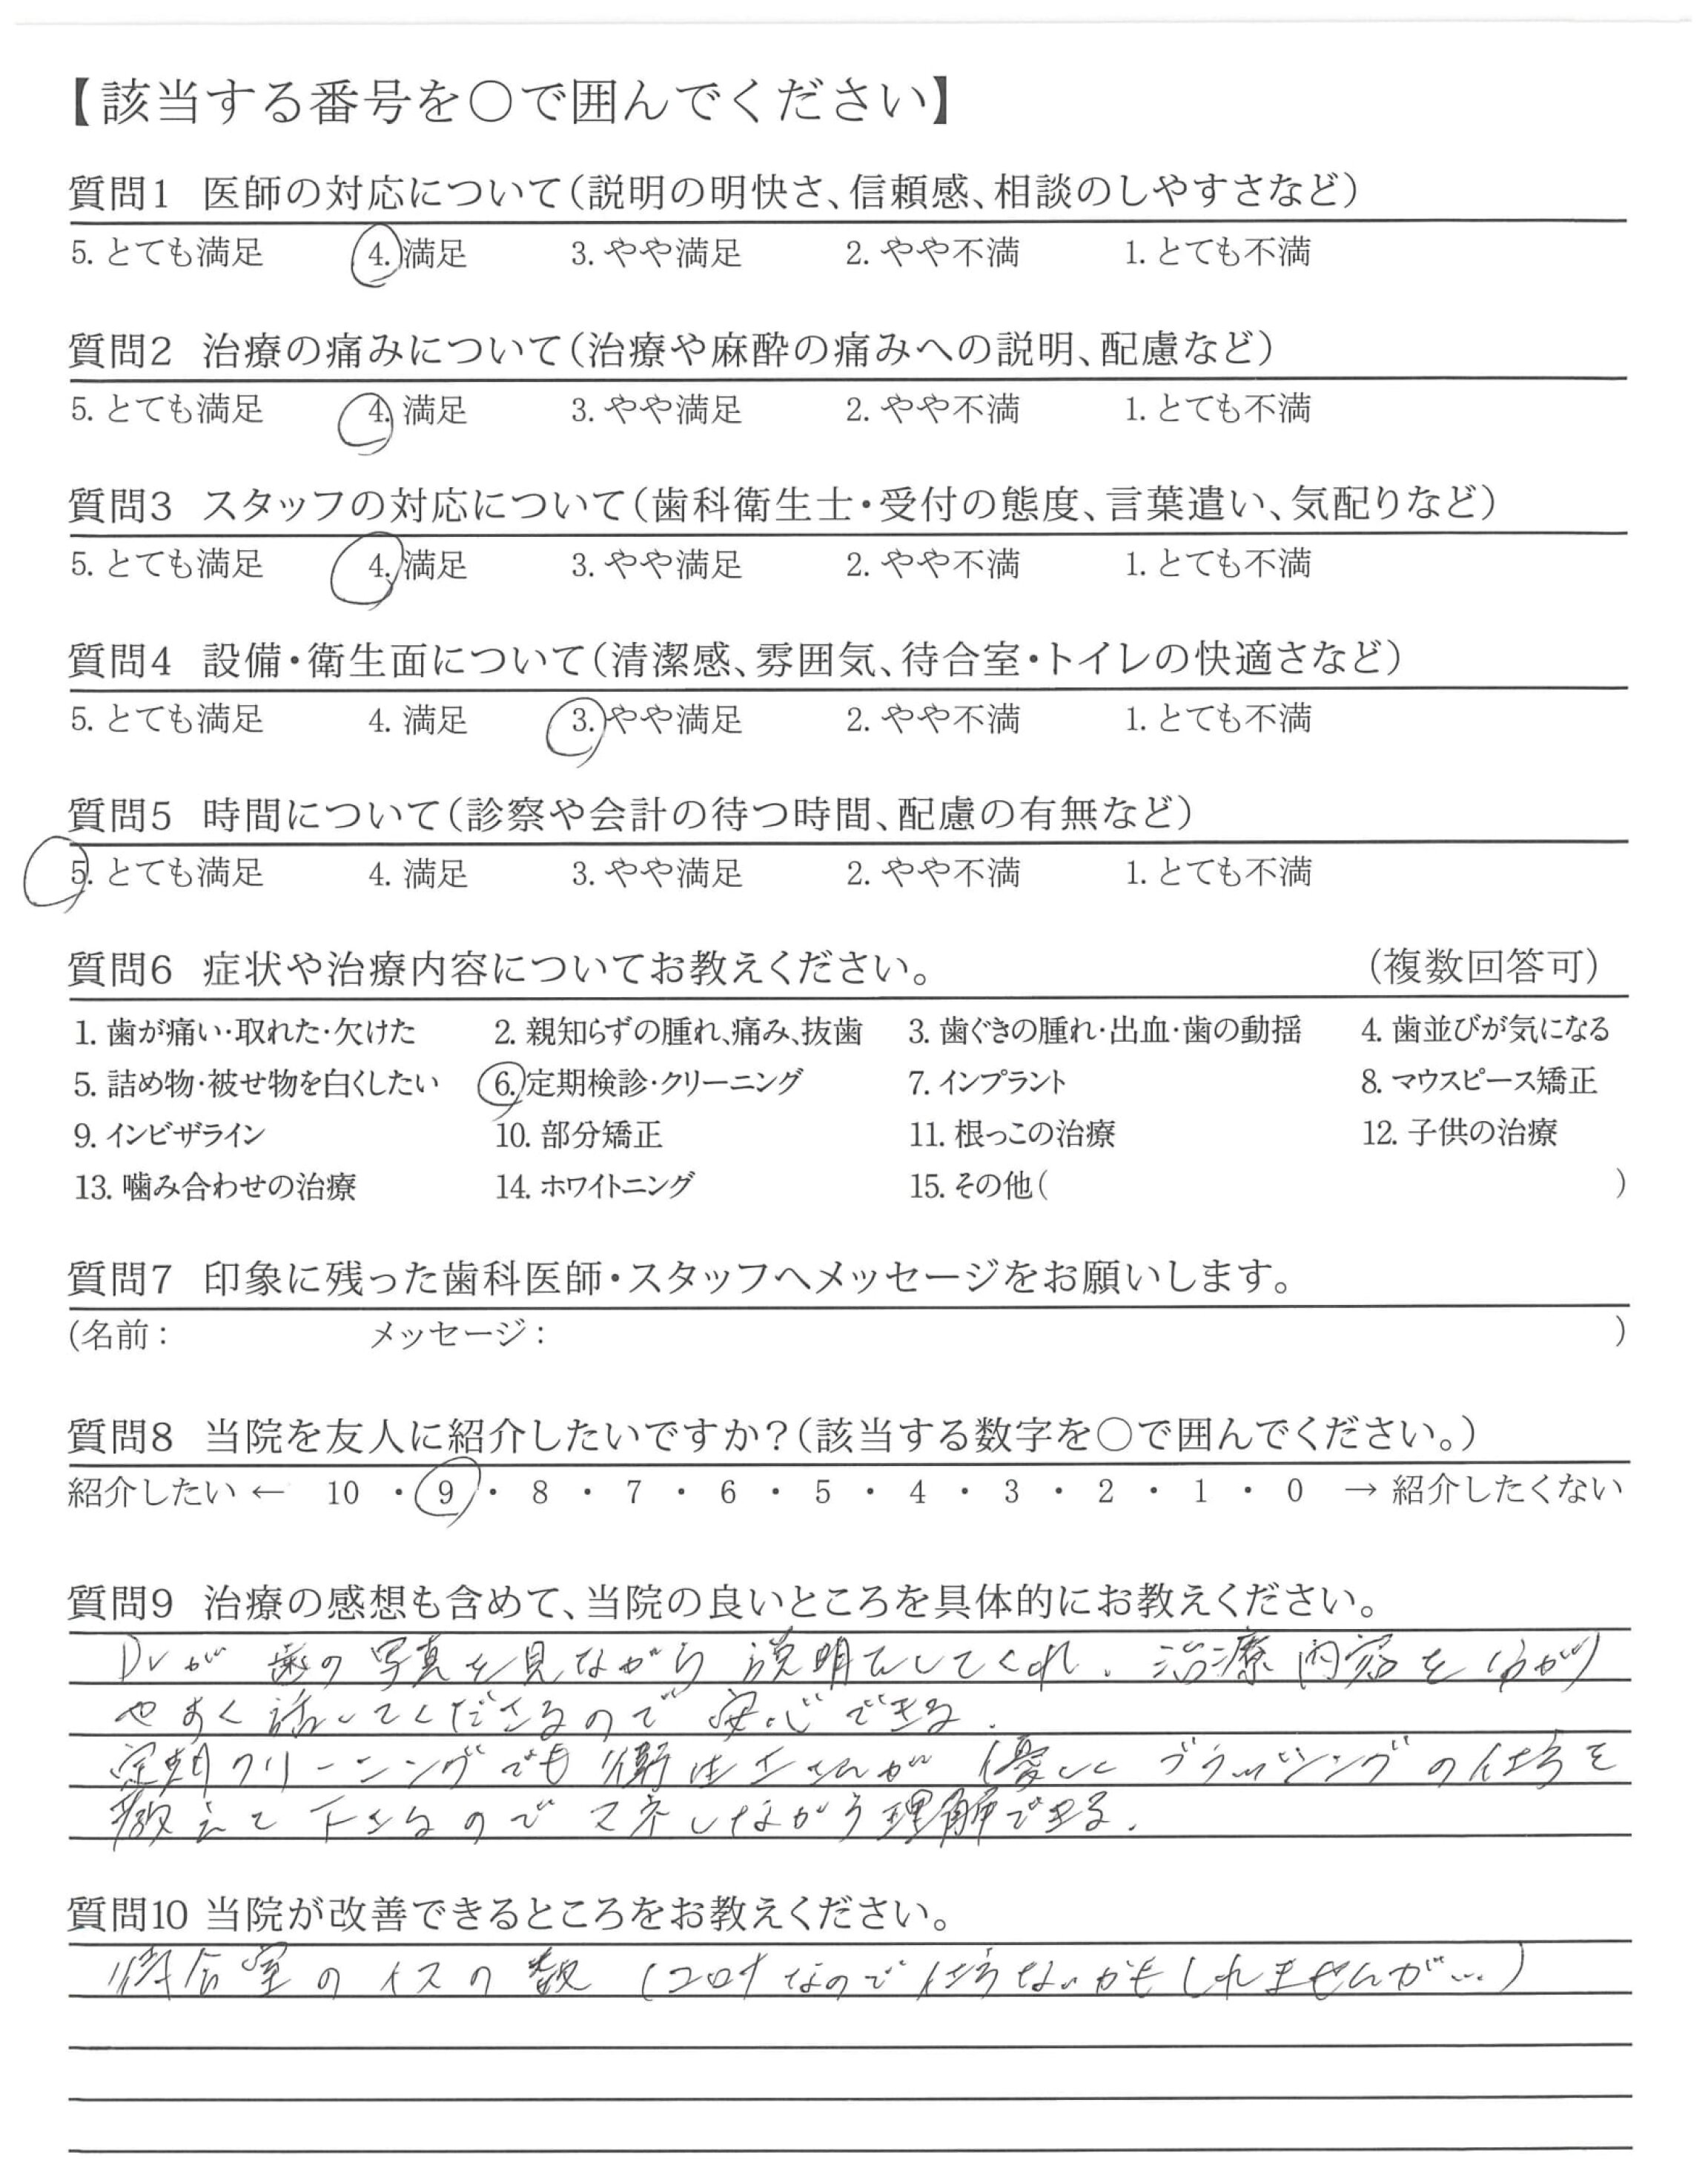 【該当する番号を○で囲んでください】
質問1 医師の対応について(説明の明快さ、信頼感、相談のしやすさなど)
5. とても満足 4. 満足 3. やや満足 2. やや不満 1. とても不満
質問2 治療の痛みについて(治療や麻酔の痛みへの説明、配慮など)
5. とても満足 4. 満足 3. やや満足 2. やや不満 1. とても不満
質問3 スタッフの対応について(歯科衛生士・受付の態度、言葉遣い、気配りなど)
5. とても満足 4. 満足 3. やや満足 2. やや不満 1. とても不満
質問4 設備・衛生面について(清潔感、雰囲気、待合室・トイレの快適さなど)
5. とても満足 4. 満足 3. やや満足 2. やや不満 1. とても不満
質問5 時間について(診察や会計の待つ時間、配慮の有無など)
5. とても満足 4. 満足 3. やや満足 2. やや不満 1. とても不満
質問6 症状や治療内容についてお教えください。 (複数回答可)
1. 歯が痛い・取れた・欠けた 2. 親知らずの腫れ、痛み、抜歯 3. 歯ぐきの腫れ・出血・歯の動揺 4. 歯並びが気になる
5. 詰め物・被せ物を白くしたい 6. 定期検診・クリーニング 7. インプラント 8. マウスピース矯正
9. インビザライン 10. 部分矯正 11. 根っこの治療 12. 子供の治療
13. 噛み合わせの治療 14. ホワイトニング 15. その他( )
質問7 印象に残った歯科医師・スタッフへメッセージをお願いします。
(名前: メッセージ: )
質問8 当院を友人に紹介したいですか?(該当する数字を○で囲んでください。)
紹介したい ← 10 ・ 9 ・ 8 ・ 7 ・ 6 ・ 5 ・ 4 ・ 3 ・ 2 ・ 1 ・ 0 → 紹介したくない
質問9 治療の感想も含めて、当院の良いところを具体的にお教えください。
Drが歯の写真を見ながら説明をしてくれ、治療内容を分かり
やすく話してくださるので安心できる。
定期クリーニングでも衛生士さんが優しくブラッシングの仕方を
教えて下さるので しながら理解できる。
質問10 当院が改善できるところをお教えください。
待合室のイスの数(コロナなので仕方ないかもしれませんが…)